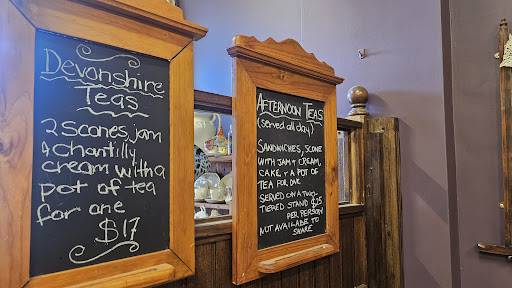 Devonshire
Teas
2 scones, jam
& chantilly
cream with a
pot of tea
for one
$17
AFTERNOON TEAS
(served all day)
SANDWICHES, SCONE
WITH JAM & CREAM,
CAKE, & A POT OF
TEA FOR ONE
SERVED ON A TWO-
TIERED STAND $25
PER PERSON
NOT AVAILABLE TO
SHARE